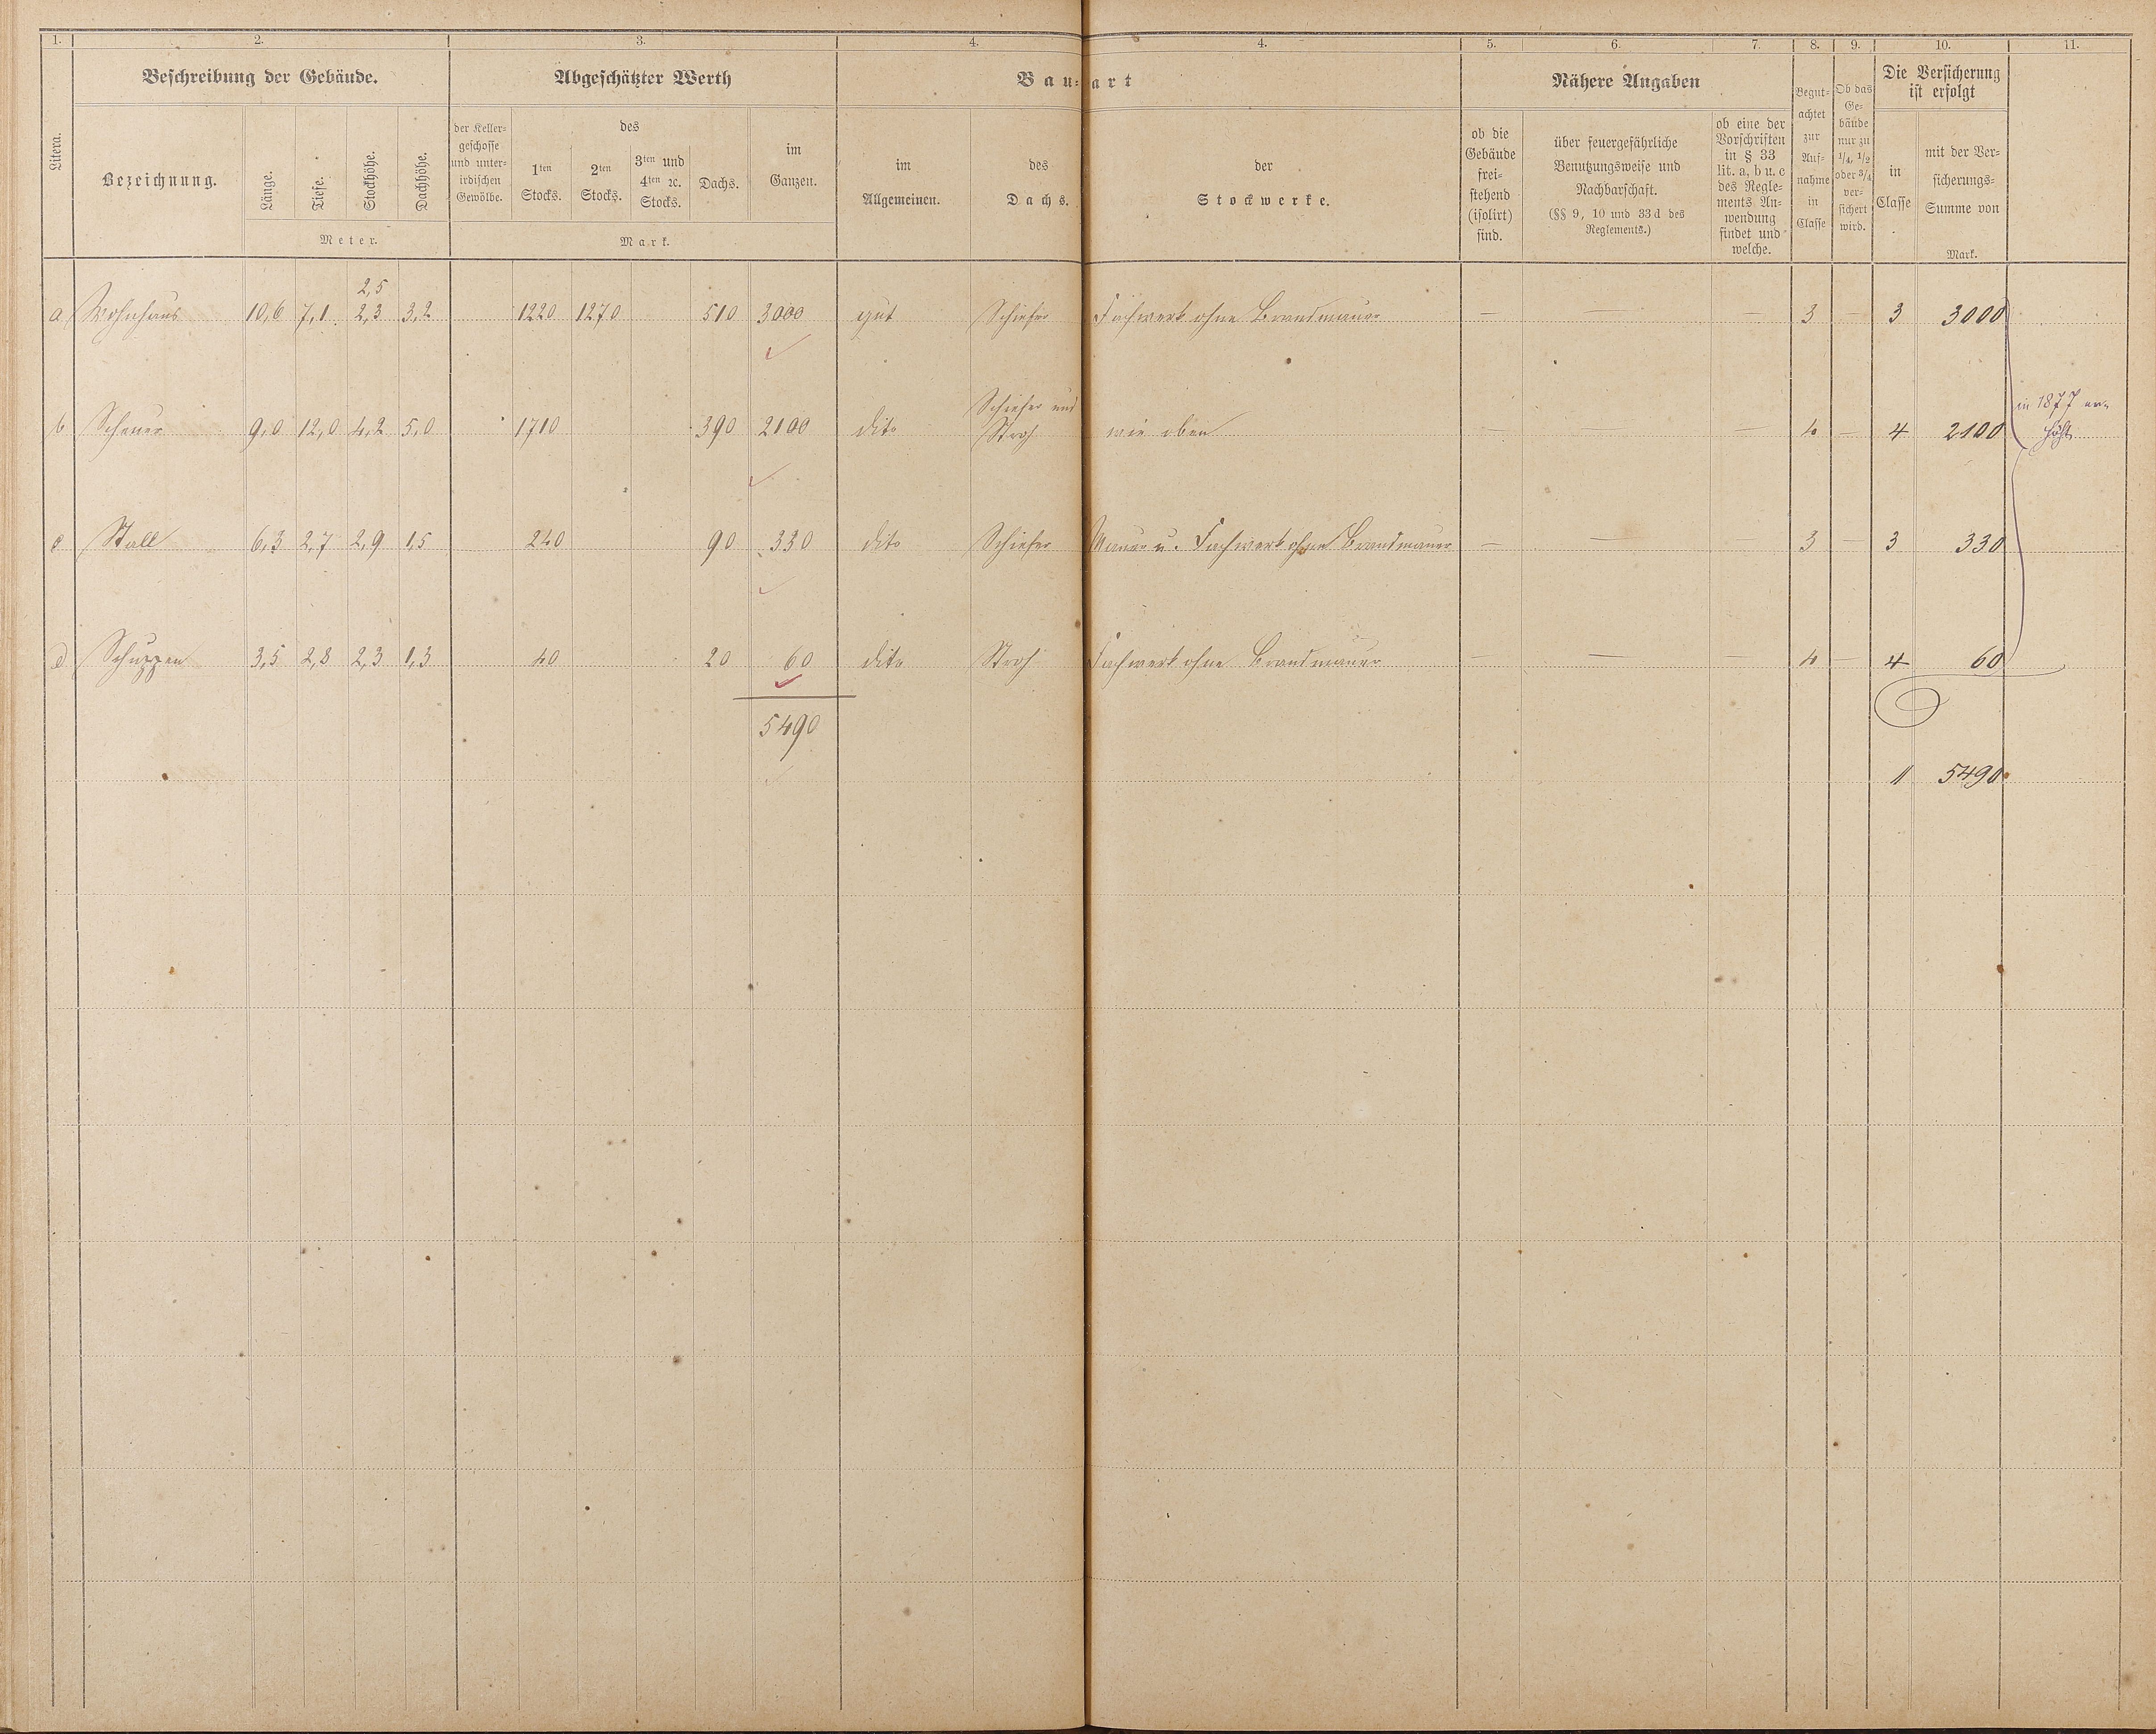 1. 2. 3. 4. 4. 5. 6. 7. 8. 9. 10. 11.
Litera.
Beschreibung der Gebäude.
Bezeichnung.
Länge.
Tiefe.
Stockhöhe.
Dachhöhe.
Meter.
Abgeschätzter Werth
der Keller-
geschosse
und unter-
irdischen
Gewölbe.
des
1ten
Stocks.
2ten
Stocks.
3ten und
4ten ꝛc.
Stocks.
Dachs.
im
Ganzen.
Mark.
Bau-art
im
Allgemeinen.
des
Dachs.
der
Stockwerke.
Nähere Angaben
ob die
Gebäude
frei-
stehend
(isolirt)
sind.
über feuergefährliche
Benutzungsweise und
Nachbarschaft.
(§§ 9, 10 und 33d des
Reglements.)
ob eine der
Vorschriften
in § 33
lit. a, b u. c
des Regle-
ments An-
wendung
findet und
welche.
Begut-
achtet
zur
Auf-
nahme
in
Classe
Ob das
Ge-
bäude
nur zu
1/4, 1/2
oder 3/4
ver-
sichert
wird.
Die Versicherung
ist erfolgt
in
Classe
mit der Ver-
sicherungs-
Summe von
Mark.
2,5
a Wohnhaus 10,6 7,1 2,3 3,2 1220 1270 510 3000 gut Schiefer Fachwerk ohne Brandmauer — — — 3 — 3 3000
Schiefer und
b Scheuer 9,0 12,0 4,2 5,0 1710 390 2100 dito Stroh wie oben — — 4 — 4 2100
in 1877 er-
höht
c Stall 6,3 2,7 2,9 1,5 240 90 330 dito Schiefer Mauer u. Fachwerk ohne Brandmauer — — 3 — 3 330
d Schuppen 3,5 2,8 2,3 1,3 40 20 60 dito Stroh Fachwerk ohne Brandmauer — — — 4 — 4 60
5490
5490